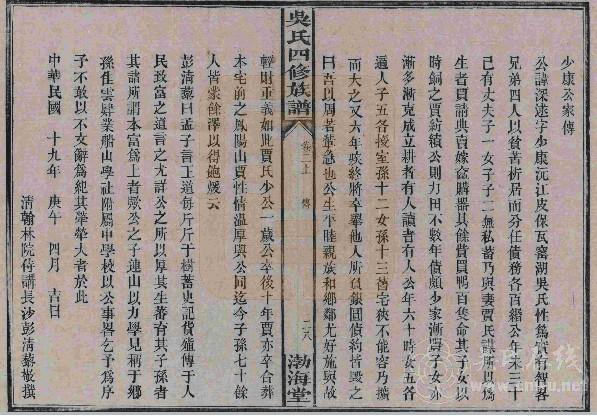 少康公家傳
公諱深逵字少康沅江皮保瓦窰湖吳氏性篤實行
兄弟四人以貧苦析居而分任債務各百緡公年未三十
己有丈夫子一女子子二無私蓄乃與妻賈氏謀所以爲
生者買請典賣嫁奩購器具餘貲買鴨百隻命其子牧以
時飼之賈紡績公則力田不數年債頗少家漸厚子女亦
漸多漸克成立耕者有人讀者有人公年六十時女五各
適人子五各授室孫十二女孫十三舊宅狹不能容乃擴
而大之又六年疾終將卒舉他人所負債約皆毀之
曰吾以周若輩急也公生平睦親族和鄉鄰尤好施與故
吳氏四修族譜
卷二上 傳
二八
渤海堂
輕財重義如此賈氏少公一歲公卒後十年賈亦卒合葬
本宅前之鳳陽山賈性情溫厚與公同迄今子孫七十餘
人皆蒙餘澤以得飽煖云
彭清藜曰孟子言王道每斤斤于樹蓄史記貨殖傳于人
民致富之道言之尤詳公之所以厚其生蕃育其子孫者
其諸所謂本富爲上者歟公之子連山以力學見稱于鄉
孫佳雲肄業船山學社附屬中學校以公事畧乞予爲序
予不敢以不文辭爲紀其犖犖大者於此
中華民國 十九年 庚午 四月 吉日
清翰林院侍講長沙彭清藜敬撰